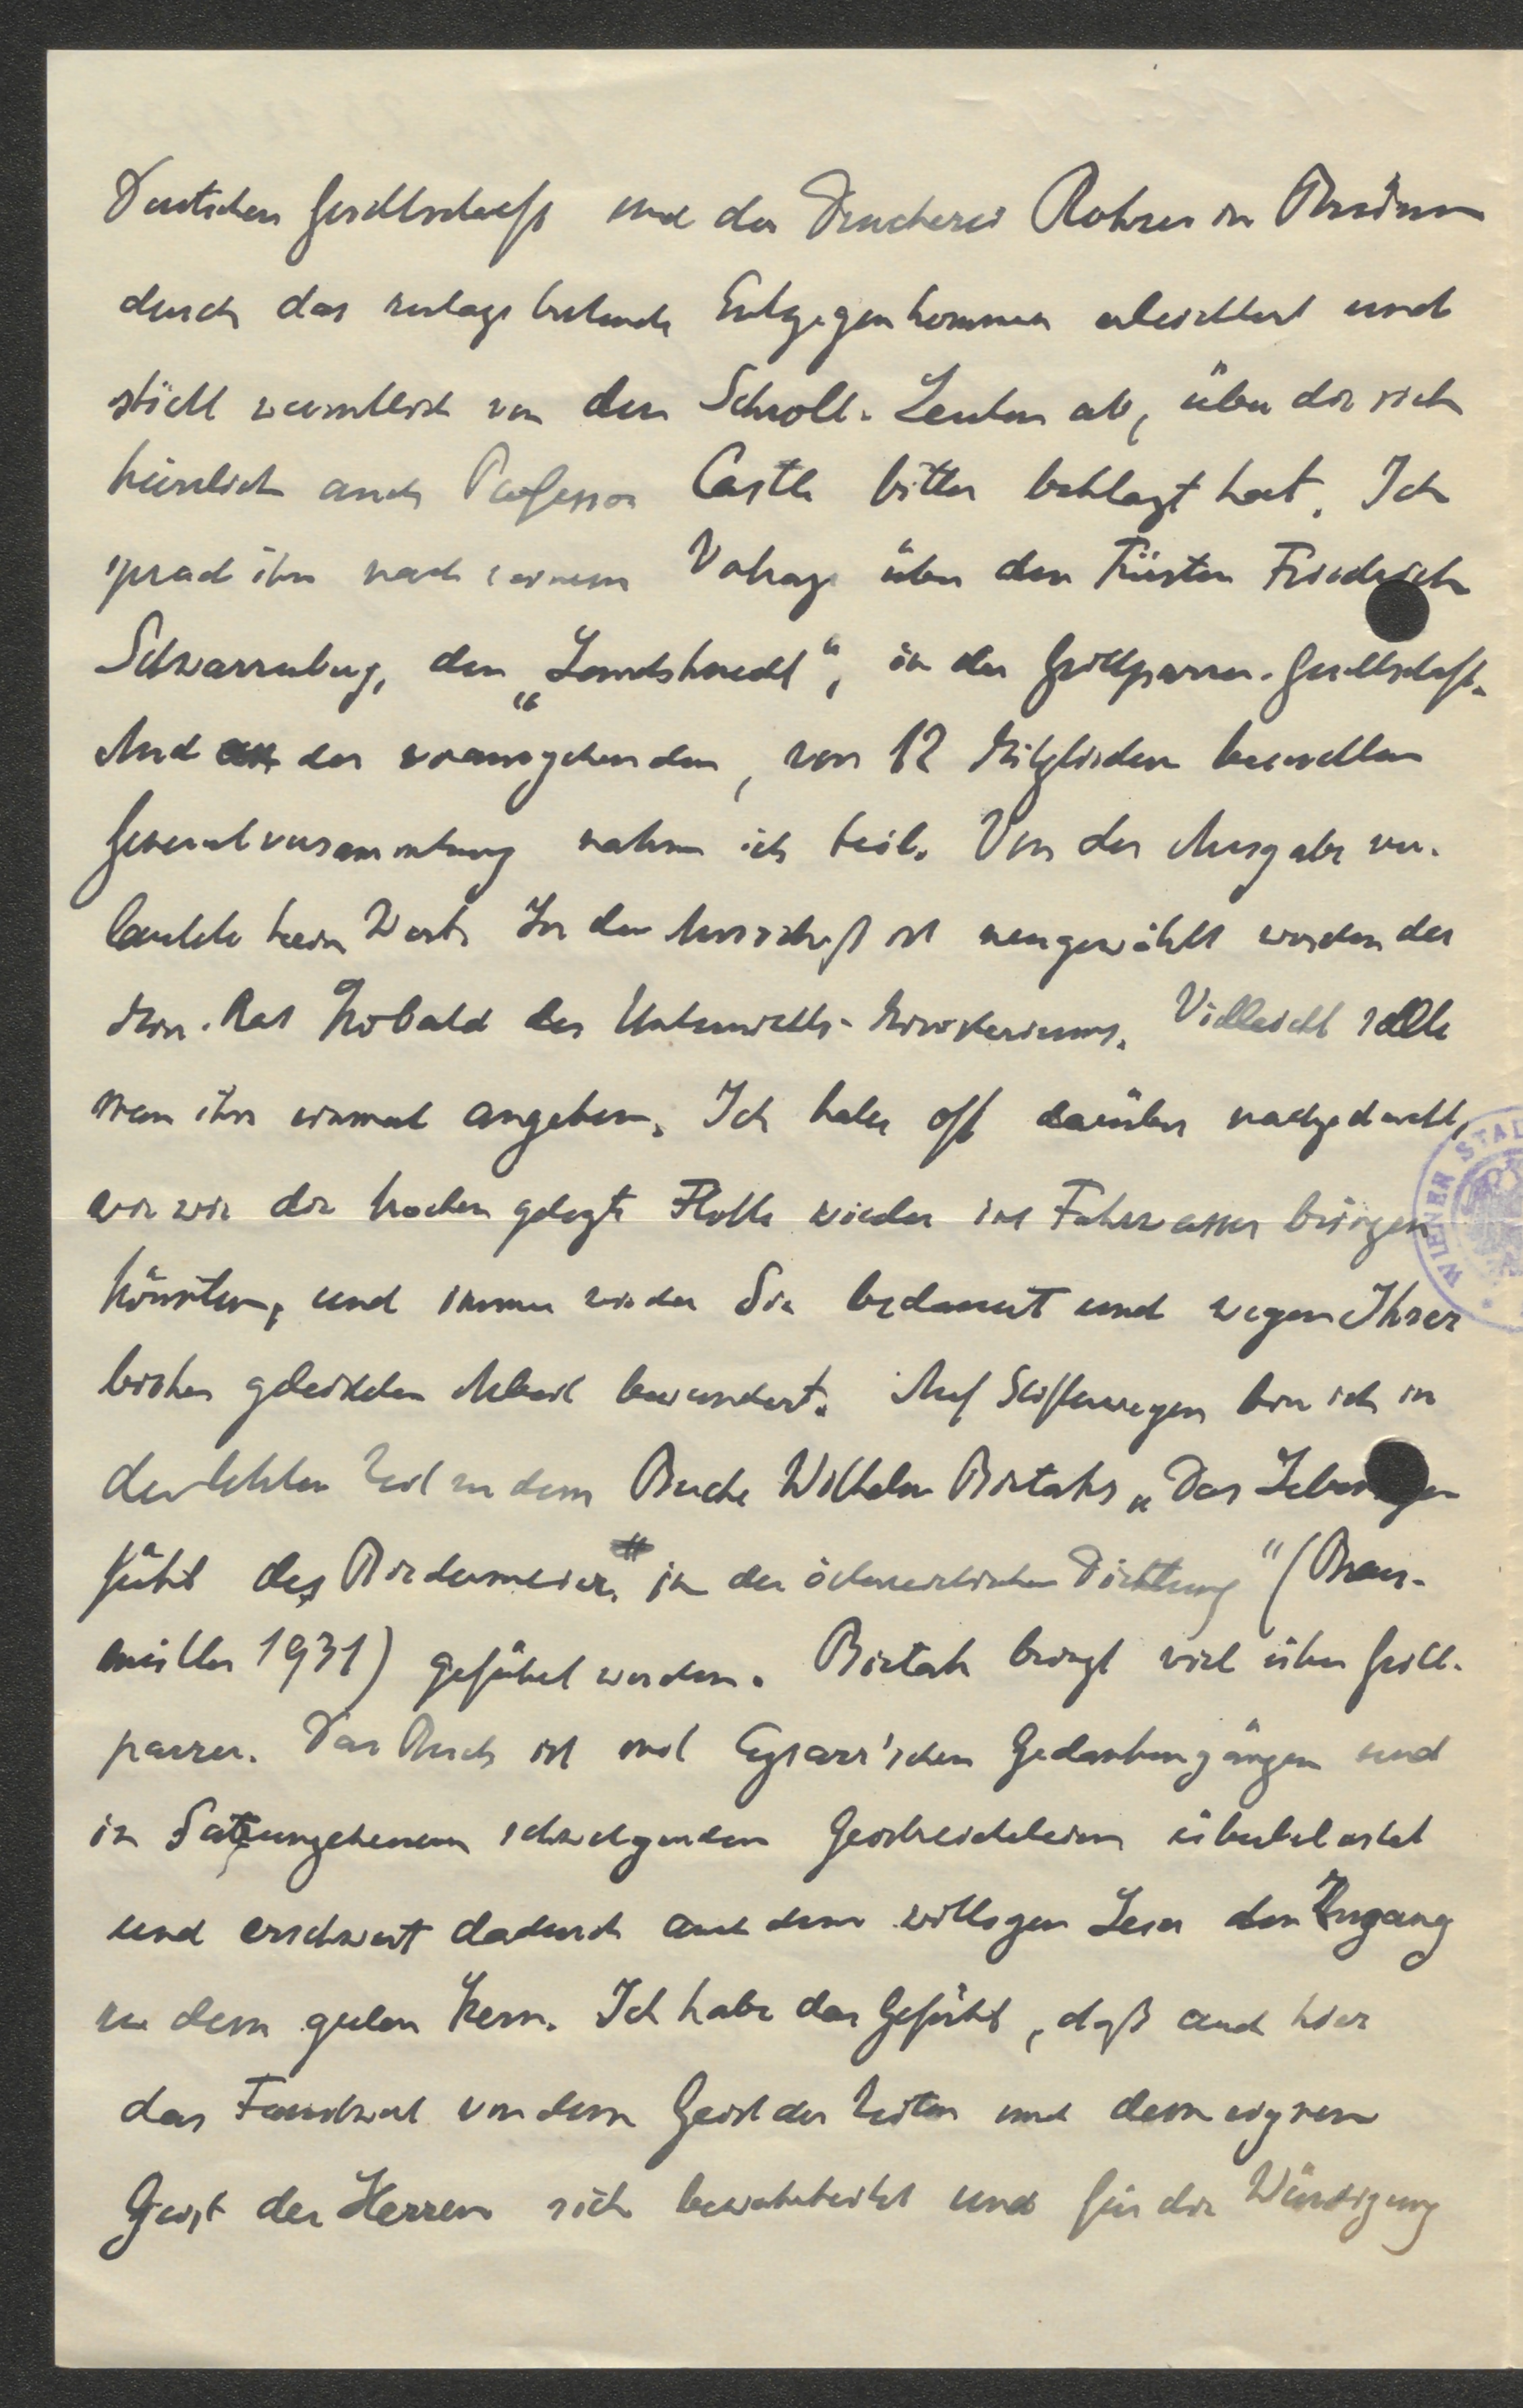 Deutschen Gesellschaft und der Druckerei Rohrer in Brünn
durch das Entgegenkommen erleichtert und
sticht vermutlich von den Schroll-Leuten ab, über die sich
kürzlich auch Professor Castle bitter beklagt hat. Ich
sprach ihn nach seinem Vortrage über den Fürsten Friedrich
Schwarzenberg, den „Landsknecht“, in der Grillparzer-Gesellschaft.
Auch der vorausgehenden, von 12 Mitgliedern besuchten
Generalversammlung nahm ich teil. Von der Ausgabe ver-
lautete kein Wort. In den Ausschuß ist neugewählt worden der
Min. Rat Kobald des Unterrichts-Ministeriums. Vielleicht sollte
man ihn einmal angehen. Ich habe oft darüber nachgedacht,
wie wir die trocken gelegte Flotte wieder ins Fahrwasser bringen
könnten, und immer wieder Sie bedauert und wegen Ihrer
bisher geleisteten Arbeit bewundert. Auf Stifterwegen bin ich in
der letzten Zeit zu dem Buche Wilhelm Bietaks „Das Lebensge-
fühl des Biedermeier in der österreichischen Dichtung“ (Brau-
müller 1931) geführt worden. Bietak bringt viel über Grill-
parzer. Das Buch ist mit Cysarz'schen Gedankengängen und
in Satzungeheuern schwelgenden Geistreicheleien überlastet
und erschwert dadurch auch dem willigen Leser den Zugang
zu dem guten Kern. Ich habe das Gefühl, daß auch hier
das Faustwort von dem Geist der Zeiten und dem eignen
Geist der Herren sich bewahrheitet und für die Würdigung
WIENER STA